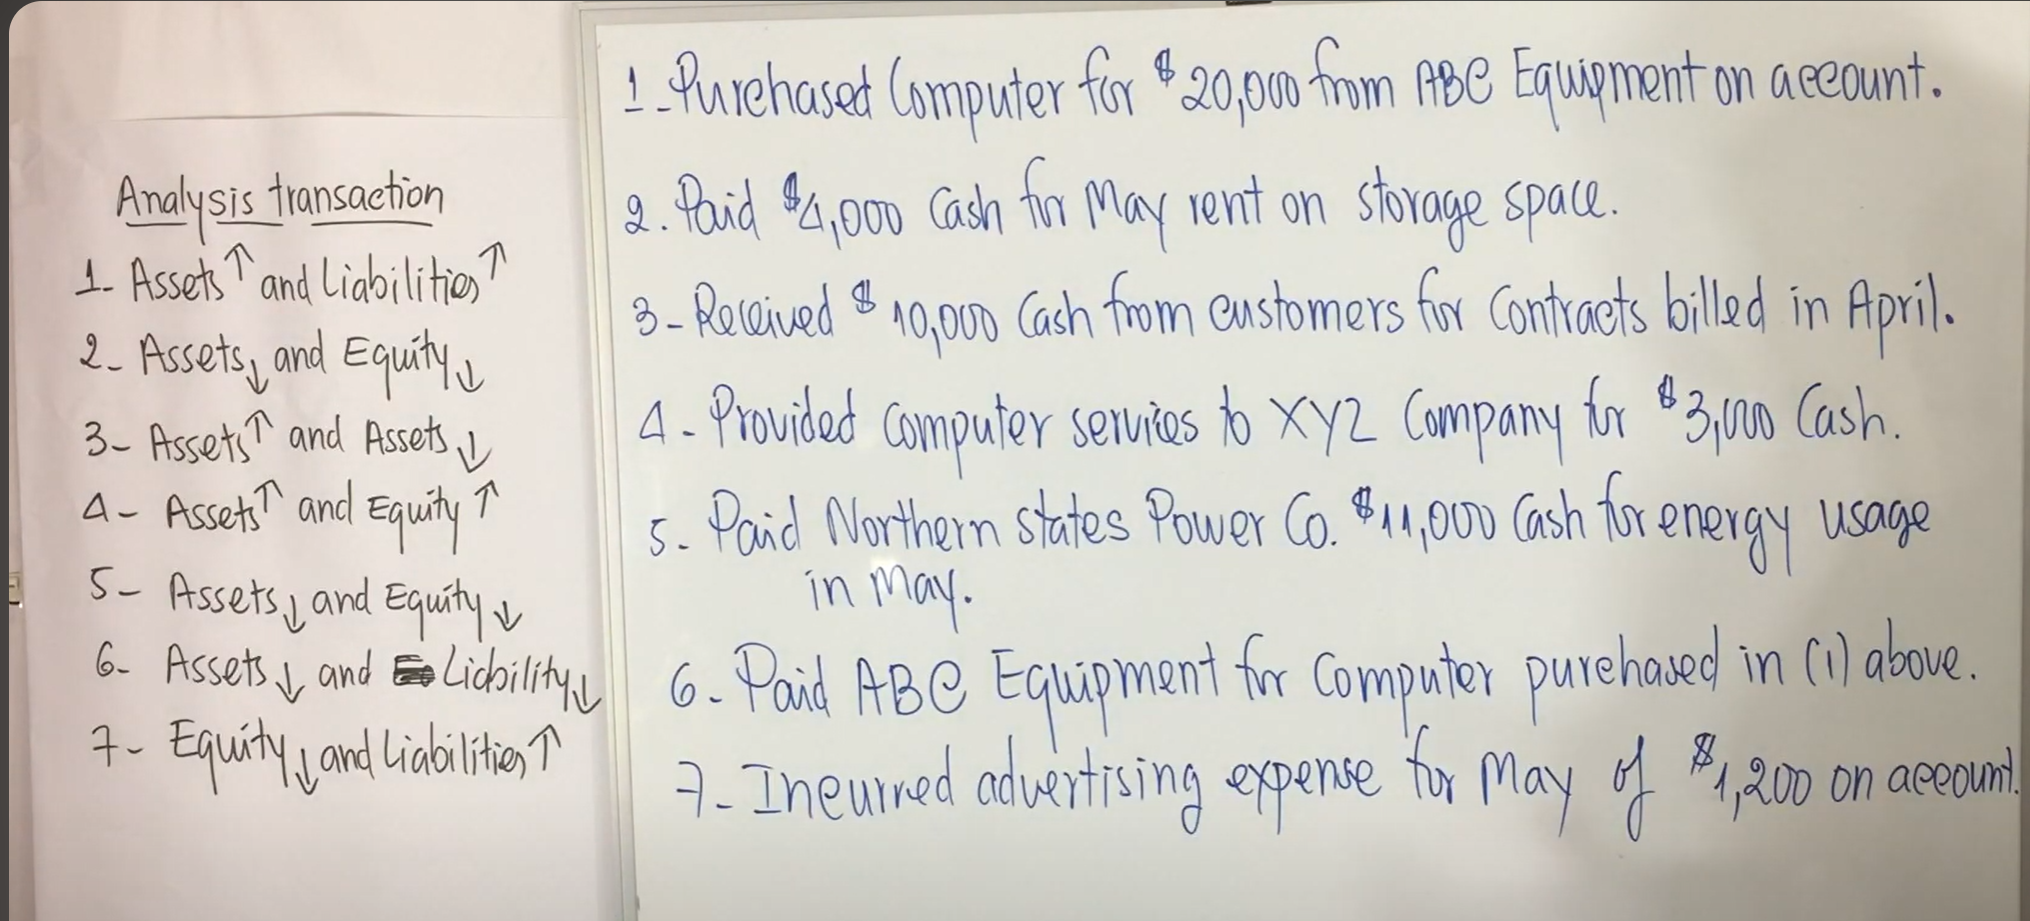 Analysis transaction
1- Assets ↑ and Liabilities ↑
2- Assets ↓ and Equity ↓
3- Assets ↑ and Assets ↓
4- Assets ↑ and Equity ↑
5- Assets ↓ and Equity ↓
6- Assets ↓ and Liability ↓
7- Equity ↓ and Liabilities ↑
1-Purchased Computer for $20,000 from ABC Equipment on account.
2. Paid $4,000 Cash for May rent on storage space.
3- Received $10,000 Cash from customers for Contracts billed in April.
4- Provided computer services to XYZ Company for $3,000 Cash.
5- Paid Northern states Power Co. $11,000 Cash for energy usage
in May.
6- Paid ABC Equipment for Computer purchased in (1) above.
7- Incurred advertising expense for May of $1,200 on account.